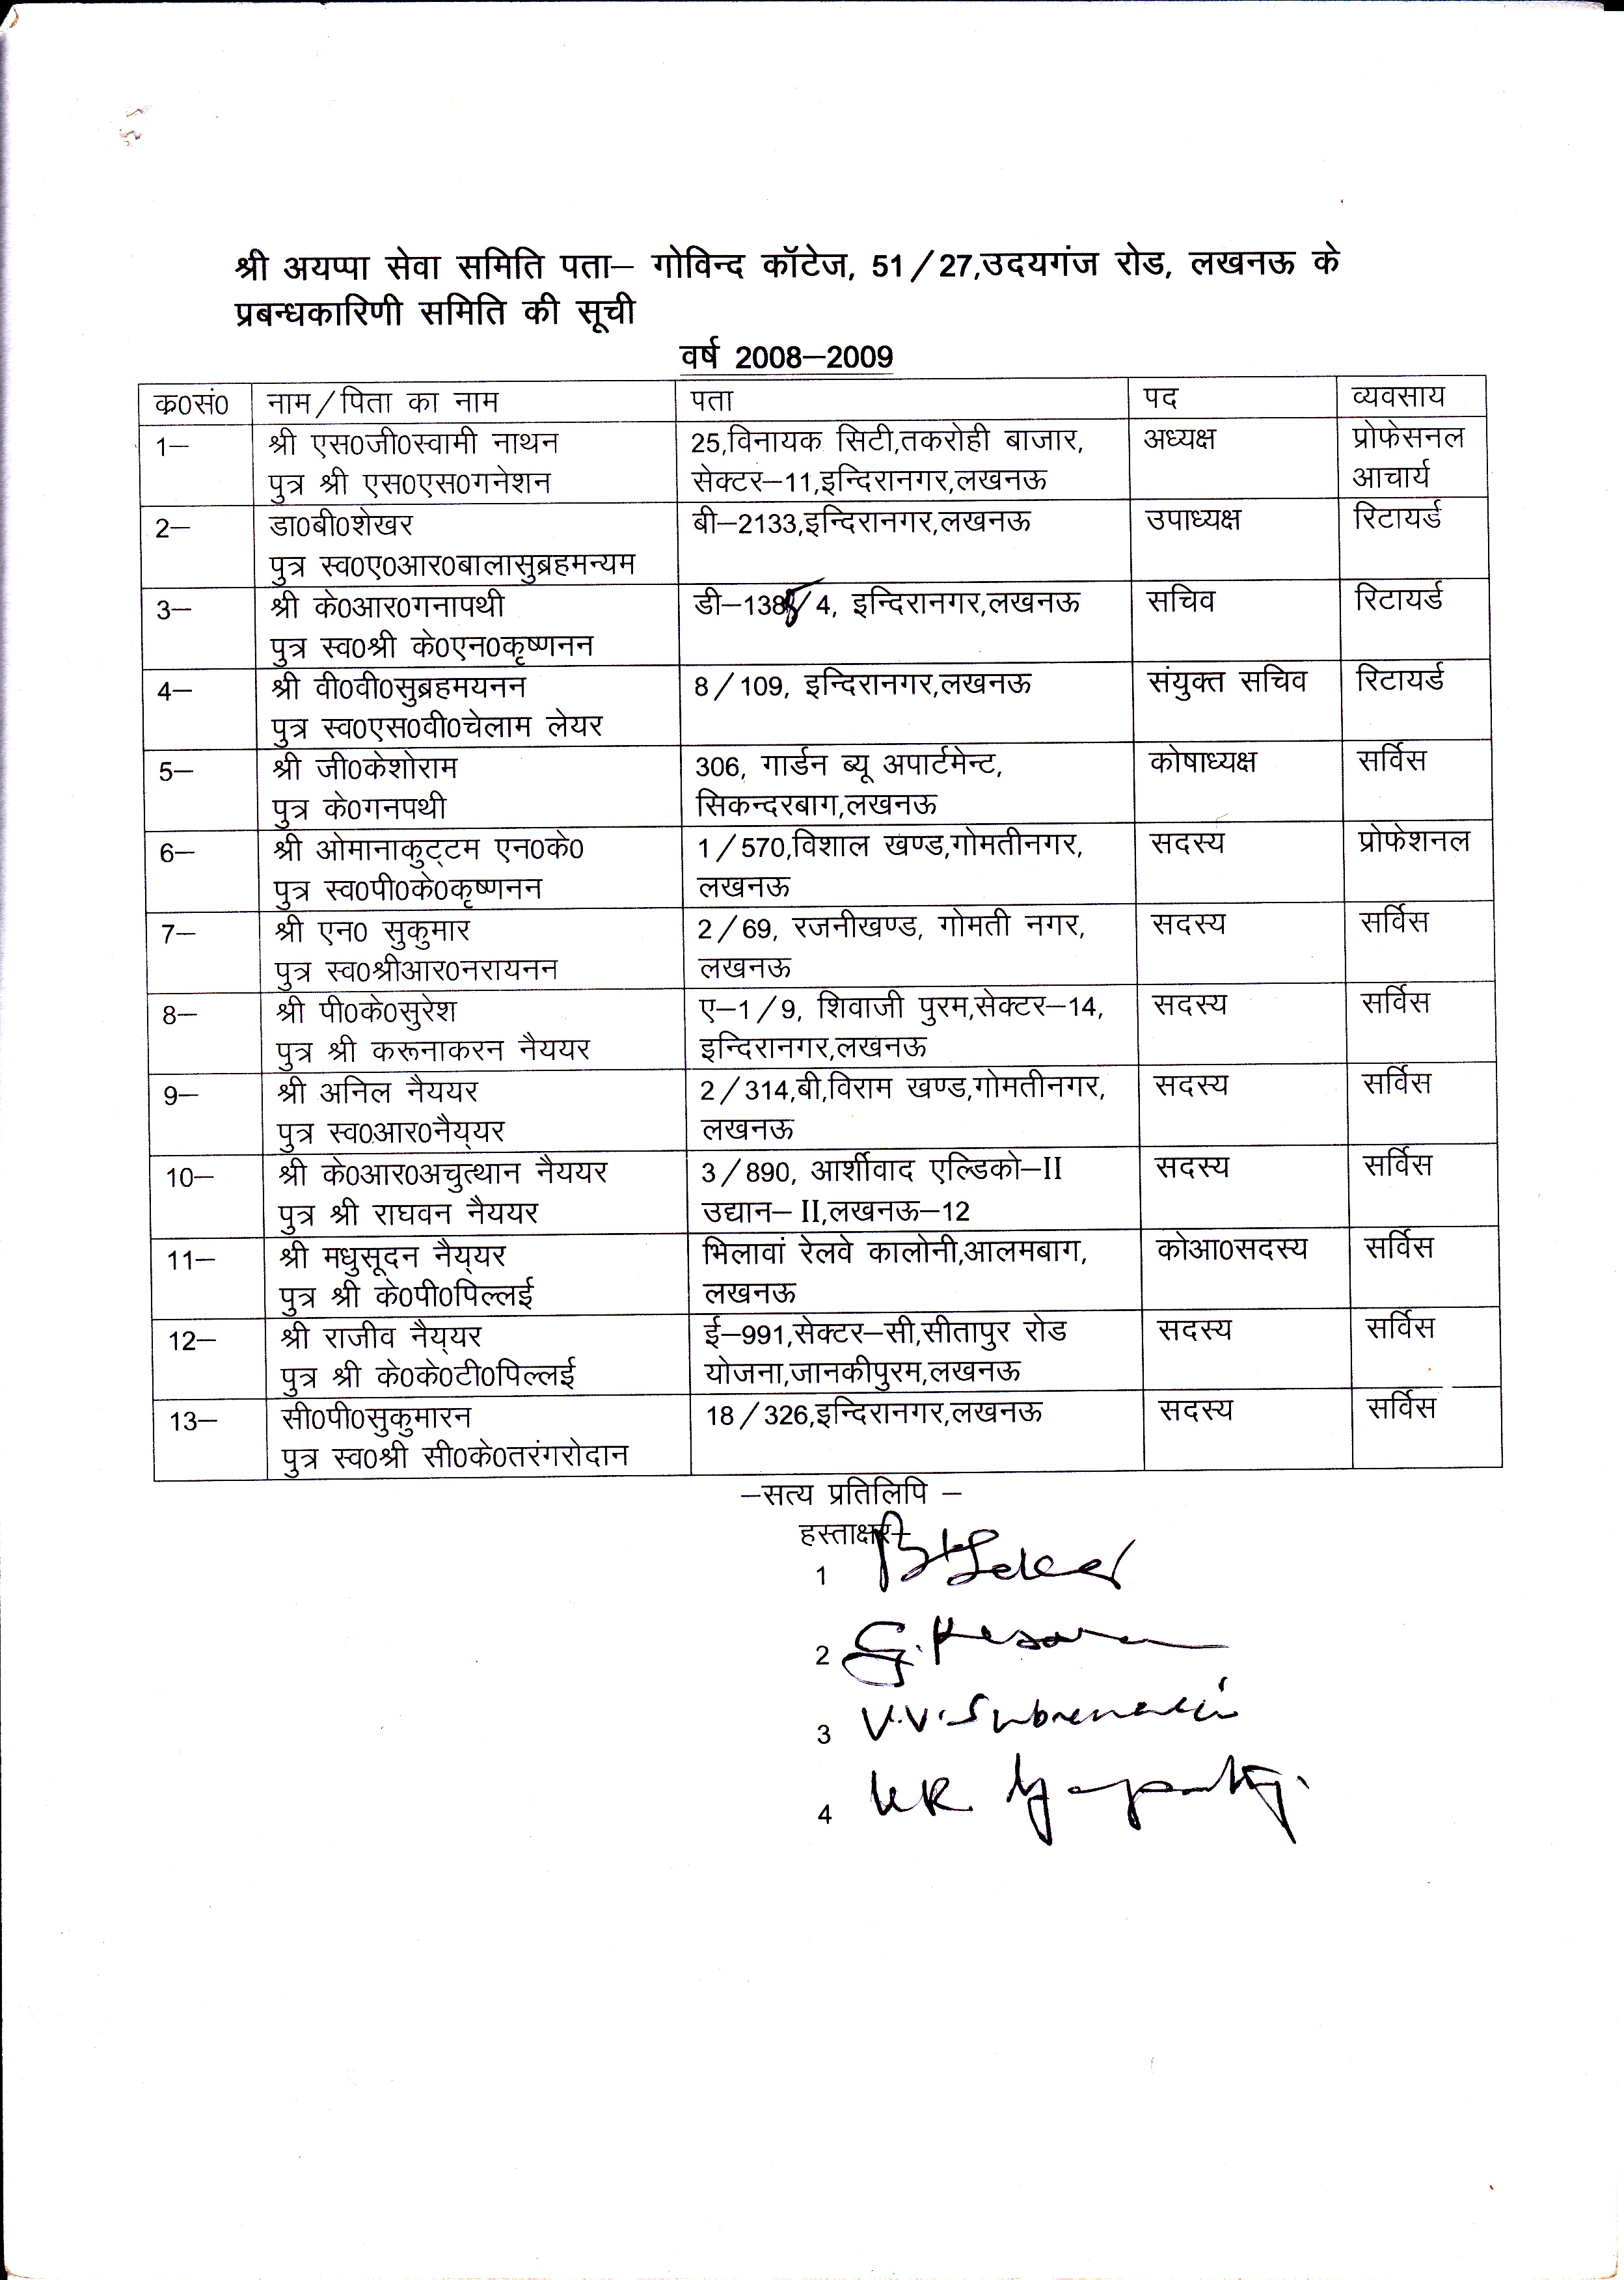 श्री अयप्पा सेवा समिति पता– गोविन्द कॉटेज, 51/27,उदयगंज रोड, लखनऊ के
प्रबन्धकारिणी समिति की सूची
वर्ष 2008–2009
क0सं0 नाम/पिता का नाम पता पद व्यवसाय
1– श्री एस0जी0स्वामी नाथन 25,विनायक सिटी,तकरोही बाजार, अध्यक्ष प्रोफेसनल
पुत्र श्री एस0एस0गनेशन सेक्टर–11,इन्दिरानगर,लखनऊ आचार्य
2– डा0बी0शेखर बी–2133,इन्दिरानगर,लखनऊ उपाध्यक्ष रिटायर्ड
पुत्र स्व0ए0आर0बालासुब्रहमन्यम
3– श्री के0आर0गनापथी इन्दिरानगर,लखनऊ सचिव रिटायर्ड
पुत्र स्व0श्री के0एन0कृष्णनन
4– श्री वी0वी0सुब्रहमयनन 8/109, इन्दिरानगर,लखनऊ संयुक्त सचिव रिटायर्ड
पुत्र स्व0एस0वी0चेलाम लेयर
5– श्री जी0केशोराम 306, गार्डन ब्यू अपार्टमेन्ट, कोषाध्यक्ष सर्विस
पुत्र के0गनपथी सिकन्दरबाग,लखनऊ
6– श्री ओमानाकुट्टम एन0के0 1/570,विशाल खण्ड,गोमतीनगर, सदस्य प्रोफेशनल
पुत्र स्व0पी0के0कृष्णनन लखनऊ
7– श्री एन0 सुकुमार 2/69, रजनीखण्ड, गोमती नगर, सदस्य सर्विस
पुत्र स्व0श्रीआर0नरायनन लखनऊ
8– श्री पी0के0सुरेश ए–1/9, शिवाजी पुरम,सेक्टर–14, सदस्य सर्विस
पुत्र श्री करूनाकरन नैययर इन्दिरानगर,लखनऊ
9– श्री अनिल नैययर 2/314,बी,विराम खण्ड,गोमतीनगर, सदस्य सर्विस
पुत्र स्व0आर0नैय्यर लखनऊ
10– श्री के0आर0अचुत्थान नैययर 3/890, आर्शीवाद एल्डिको–II सदस्य सर्विस
पुत्र श्री राघवन नैययर उद्यान– II,लखनऊ–12
11– श्री मधुसूदन नैय्यर भिलावां रेलवे कालोनी,आलमबाग, को‌आ0सदस्य सर्विस
पुत्र श्री के0पी0पिल्लई लखनऊ
12– श्री राजीव नैय्यर ई–991,सेक्टर–सी,सीतापुर रोड सदस्य सर्विस
पुत्र श्री के0के0टी0पिल्लई योजना,जानकीपुरम,लखनऊ
13– सी0पी0सुकुमारन 18/326,इन्दिरानगर,लखनऊ सदस्य सर्विस
पुत्र स्व0श्री सी0के0तरंगरोदान
–सत्य प्रतिलिपि –
हस्ताक्षर–
1
2 G. Kesoram
3 V.V.
4 KR